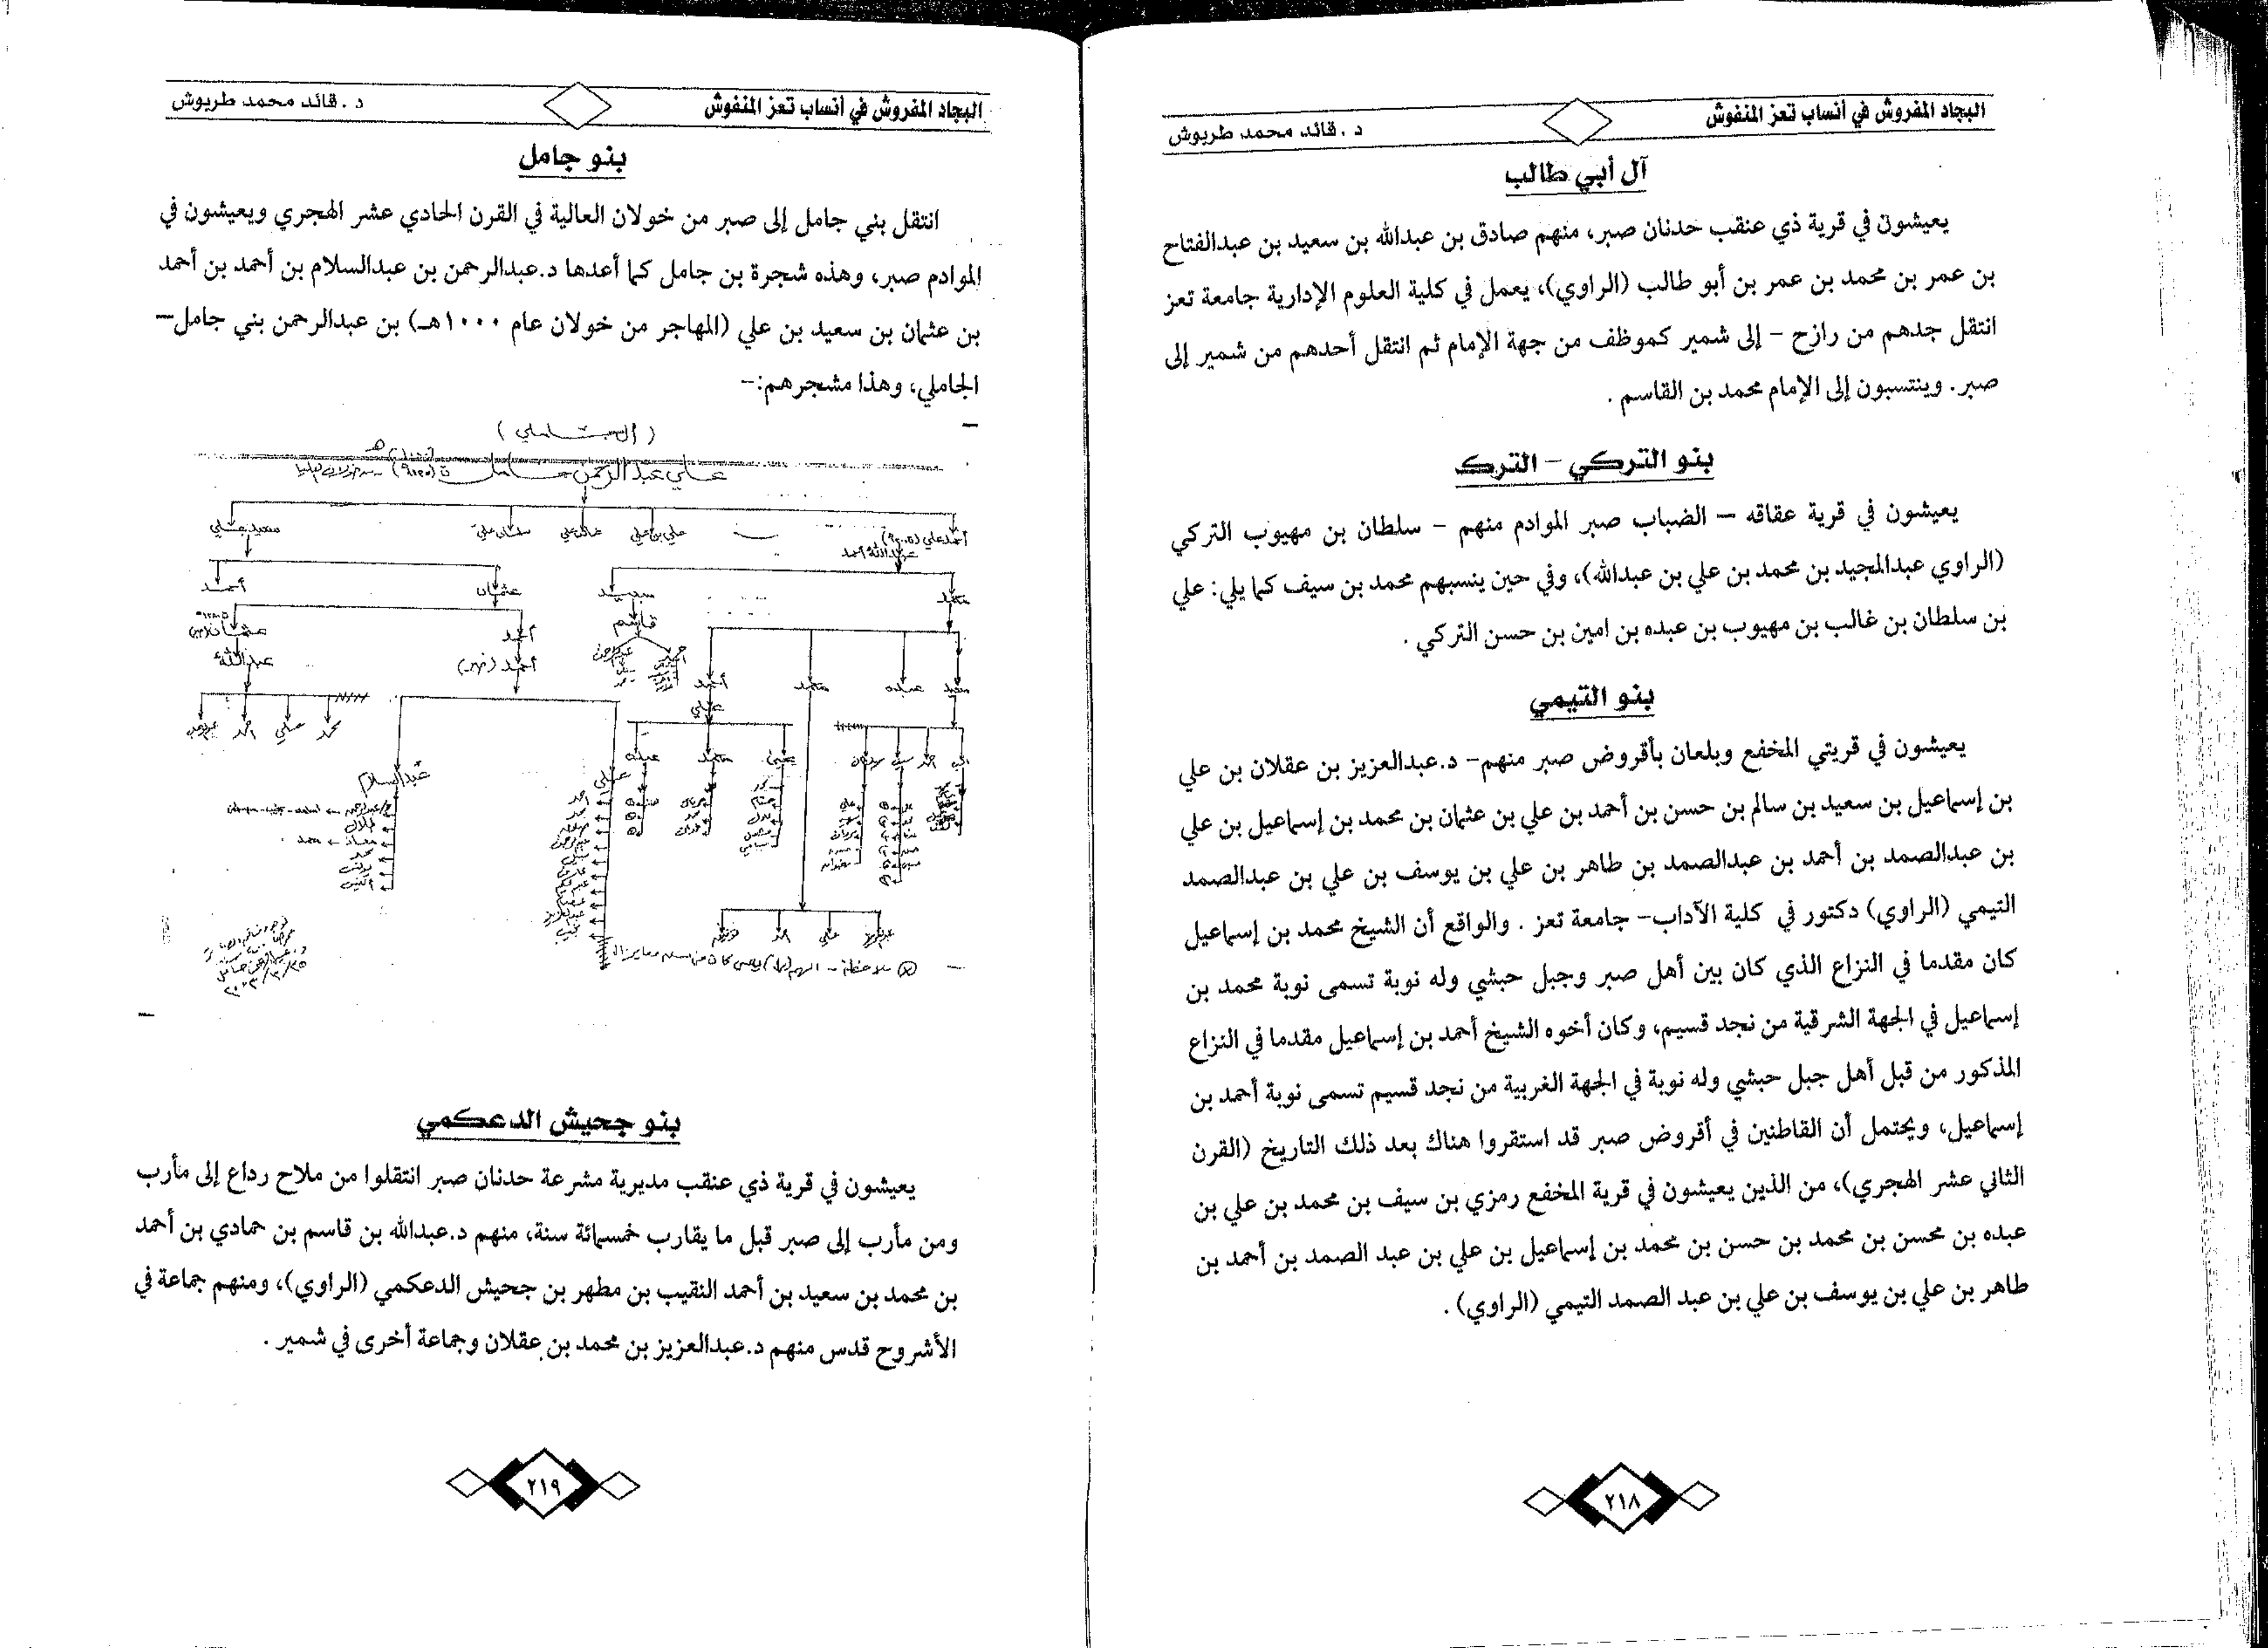 البجاد المفروش في أنساب تعز المنفوش
د. قائد محمد طربوش
آل أبي طالب
يعيشون في قرية ذي عنقب حدنان صبر، منهم صادق بن عبدالله بن سعيد بن عبدالفتاح
بن عمر بن محمد بن عمر بن أبو طالب (الراوي)، يعمل في كلية العلوم الإدارية جامعة تعز
انتقل جدهم من رازح – إلى شمير كموظف من جهة الإمام ثم انتقل أحدهم من شمير إلى
صبر. وينتسبون إلى الإمام محمد بن القاسم .
بنو التركي – الترك
يعيشون في قرية عقاقه – الضباب صبر الموادم منهم – سلطان بن مهيوب التركي
(الراوي عبدالمجيد بن محمد بن علي بن عبدالله)، وفي حين ينسبهم محمد بن سيف كما يلي: علي
بن سلطان بن غالب بن مهيوب بن عبده بن امين بن حسن التركي .
بنو التيمي
يعيشون في قريتي المخفع وبلعان بأقروض صبر منهم– د.عبدالعزيز بن عقلان بن علي
بن إسماعيل بن سعيد بن سالم بن حسن بن أحمد بن علي بن عثمان بن محمد بن إسماعيل بن علي
بن عبدالصمد بن أحمد بن عبدالصمد بن طاهر بن علي بن يوسف بن علي بن عبدالصمد
التيمي (الراوي) دكتور في كلية الآداب– جامعة تعز . والواقع أن الشيخ محمد بن إسماعيل
كان مقدما في النزاع الذي كان بين أهل صبر وجبل حبشي وله نوبة تسمى نوبة محمد بن
إسماعيل في الجهة الشرقية من نجد قسيم، وكان أخوه الشيخ أحمد بن إسماعيل مقدما في النزاع
المذكور من قبل أهل جبل حبشي وله نوبة في الجهة الغربية من نجد قسيم تسمى نوبة أحمد بن
إسماعيل، ويحتمل أن القاطنين في أقروض صبر قد استقروا هناك بعد ذلك التاريخ (القرن
الثاني عشر الهجري)، من الذين يعيشون في قرية المخفع رمزي بن سيف بن محمد بن علي بن
عبده بن محسن بن محمد بن حسن بن محمد بن إسماعيل بن علي بن عبد الصمد بن أحمد بن
طاهر بن علي بن يوسف بن علي بن عبد الصمد التيمي (الراوي) .
٢١٨
البجاد المفروش في أنساب تعز المنفوش
د. قائد محمد طربوش
بنو جامل
انتقل بني جامل إلى صبر من خولان العالية في القرن الحادي عشر الهجري ويعيشون في
الموادم صبر، وهذه شجرة بن جامل كما أعدها د.عبدالرحمن بن عبدالسلام بن أحمد بن أحمد
بن عثمان بن سعيد بن علي (المهاجر من خولان عام ١٠٠٠هـ) بن عبدالرحمن بني جامل–
الجاملي، وهذا مشجرهم:–
علي عبدالرحمن جامل
أحمد علي
عبدالله أحمد
علي بن علي
خالد علي
سلطان علي
سعيد علي
محمد
سعيد
عثمان
أحمد
قاسم
أحمد
عثمان
أحمد
عبدالله
سعيد
عبده
محمد
أحمد
علي
محمد
علي
يحيى
محمد
عبده
علي
عبدالسلام
بنو جحيش الدعكمي
يعيشون في قرية ذي عنقب مديرية مشرعة حدنان صبر انتقلوا من ملاح رداع إلى مأرب
ومن مأرب إلى صبر قبل ما يقارب خمسمائة سنة، منهم د.عبدالله بن قاسم بن حمادي بن أحمد
بن محمد بن سعيد بن أحمد النقيب بن مطهر بن جحيش الدعكمي (الراوي)، ومنهم جماعة في
الأشروح قدس منهم د.عبدالعزيز بن محمد بن عقلان وجماعة أخرى في شمير .
٢١٩